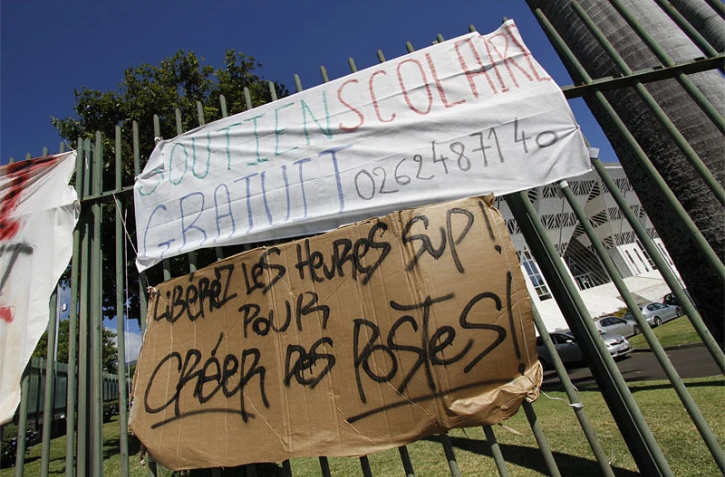 SOUTIEN SCOLAIRE
GRATUIT 0262487140
LIBÉREZ LES HEURES SUP!
POUR
CRÉER DES POSTES!